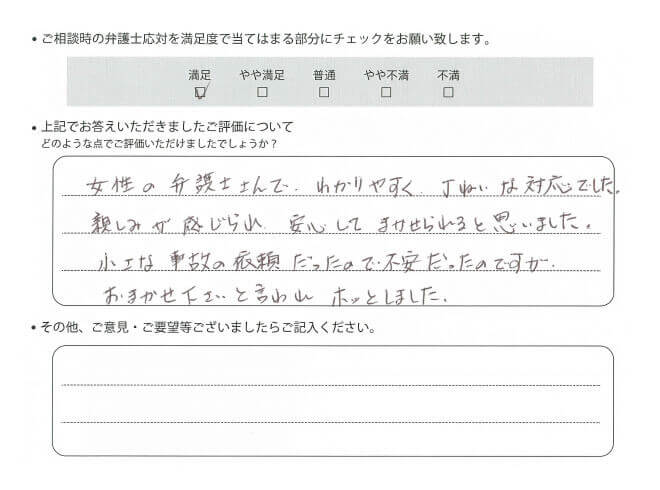 • ご相談時の弁護士応対を満足度で当てはまる部分にチェックをお願い致します。
満足 やや満足 普通 やや不満 不満
• 上記でお答えいただきましたご評価について
どのような点でご評価いただけましたでしょうか？
女性の弁護士さんで、わかりやすく、丁ねいな対応でした。
親しみが感じられ、安心してまかせられると思いました。
小さな事故の依頼だったので不安だったのですが、
おまかせ下さいと言われホッとしました。
• その他、ご意見・ご要望等ございましたらご記入ください。